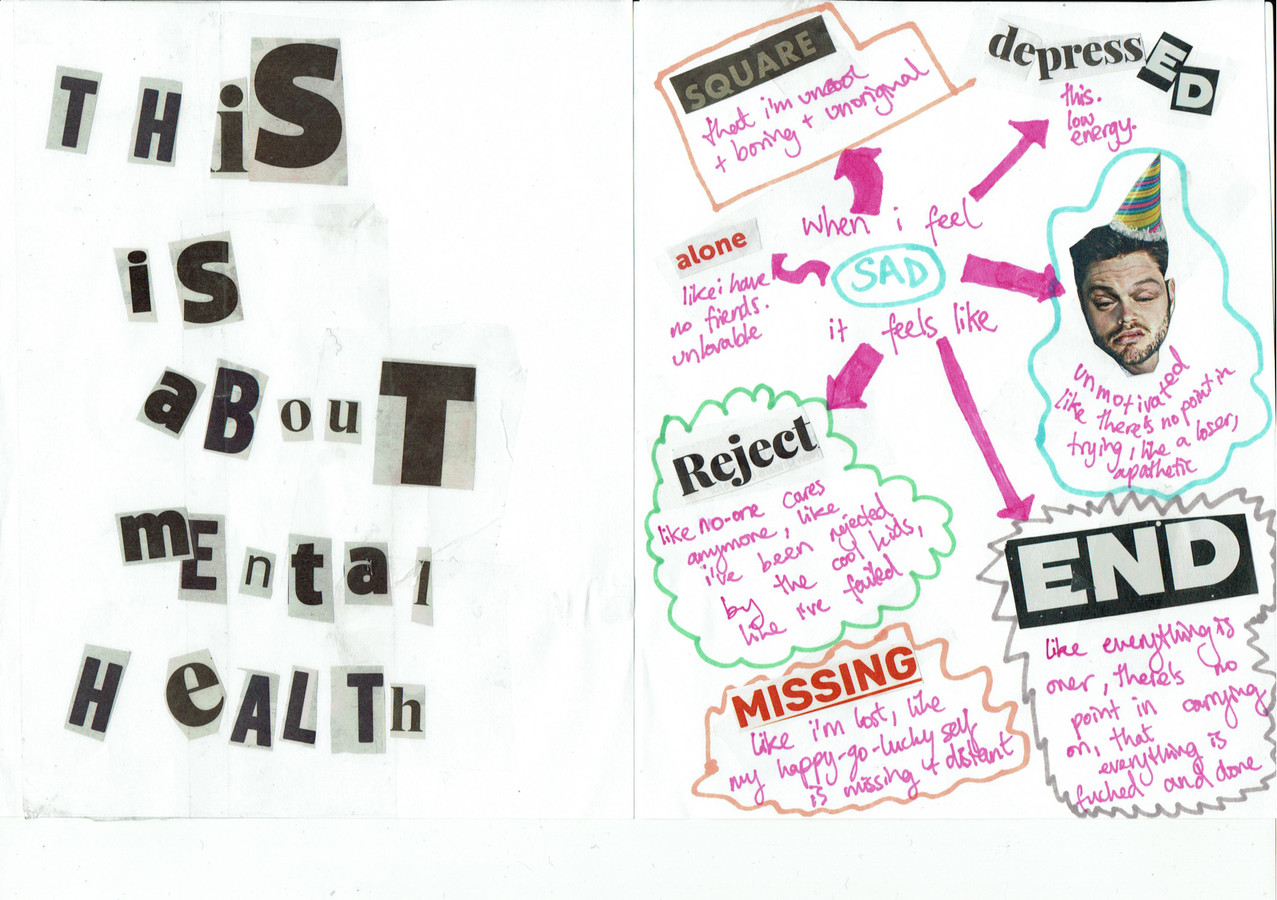 THiS
iS
aBouT
mEntal
HeALTh
SQUARE
that i'm uncool
+ boring + unorignal
depressED
this.
low
energy.
alone
like i have
no friends.
unlovable
when i feel
SAD
it feels like
unmotivated
like there's no point in
trying, like a loser,
apathetic
Reject
like no-one cares
anymore, like
i've been rejected
by the cool kids,
like i've failed
END
like everything is
over, there's no
point in carrying
on, that
everything is
fucked and done
MISSING
like i'm lost, like
my happy-go-lucky self
is missing + distant